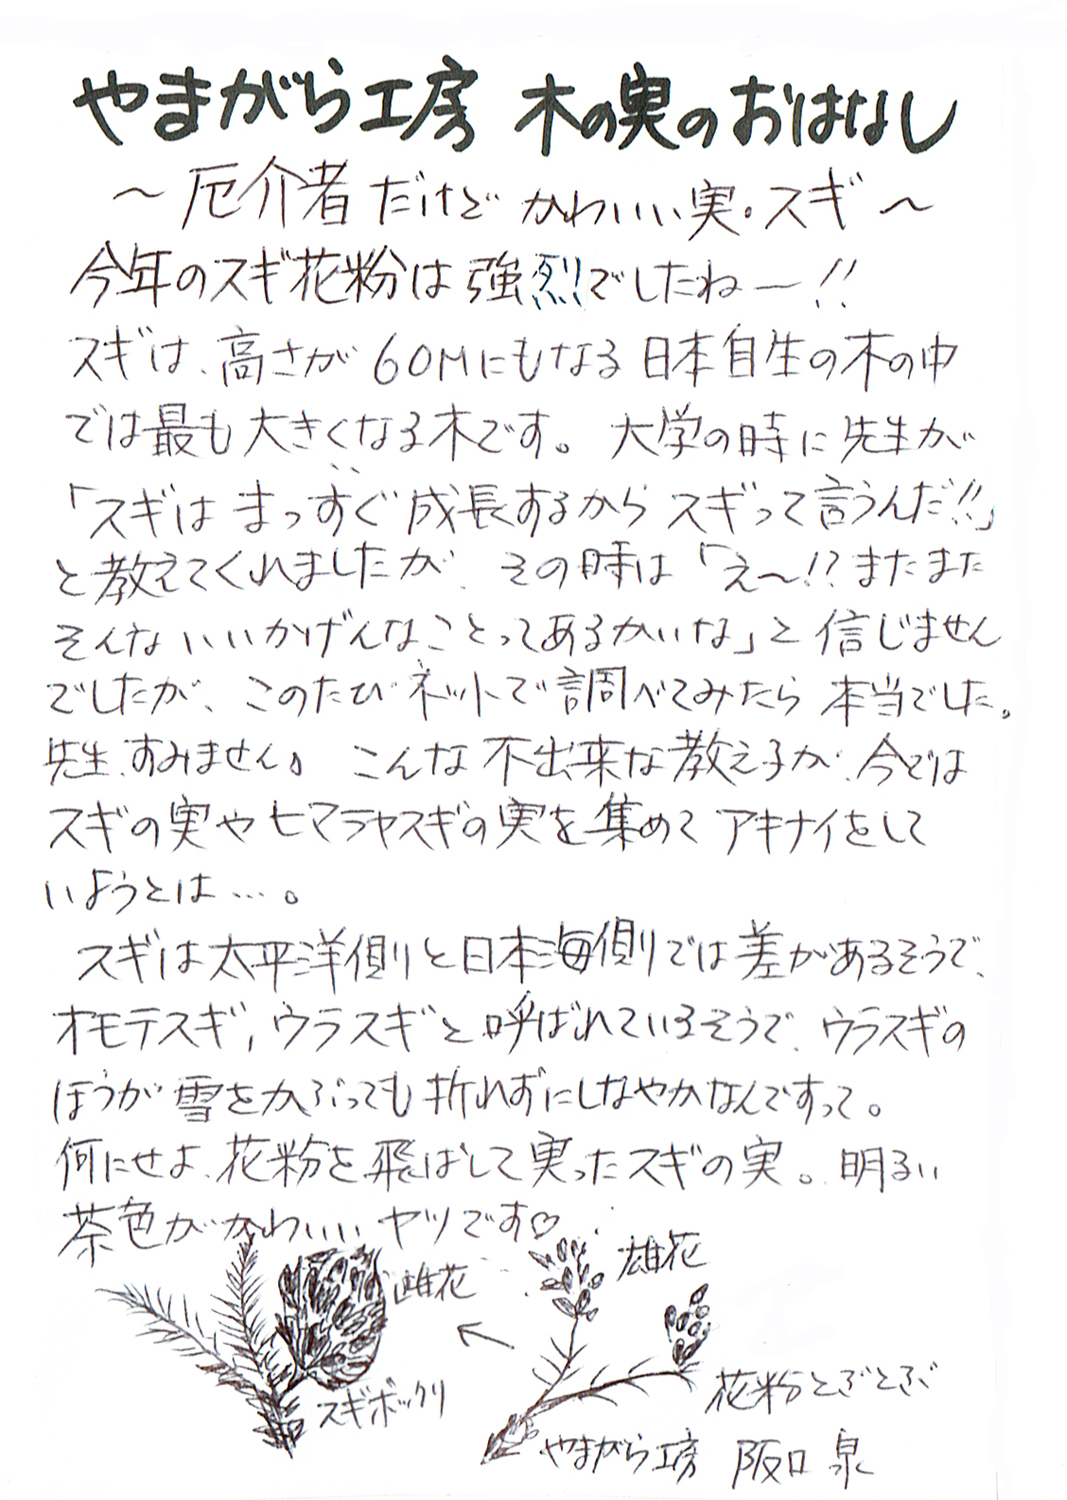 やまがら工房 木の実のおはなし
〜厄介者だけど かわいい実・スギ〜
今年のスギ花粉は強烈でしたねー!!
スギは、高さが60Mにもなる日本自生の木の中
では最も大きくなる木です。大学の時に先生が
「スギはまっすぐ成長するからスギって言うんだ!!」
と教えてくれましたが、その時は「え〜!?またまた
そんないいかげんなことってあるかいな」と信じません
でしたが、このたびネットで調べてみたら本当でした。
先生、すみません。こんな不出来な教え子が、今では
スギの実やヒマラヤスギの実を集めてアキナイをして
いようとは…。
スギは太平洋側と日本海側では差があるそうで、
オモテスギ,ウラスギと呼ばれているそうで、ウラスギの
ほうが雪をかぶっても折れずにしなやかなんですって。
何にせよ、花粉を飛ばして実ったスギの実。明るい
茶色がかわいいヤツです♡
雌花
雄花
スギボックリ
花粉とぶとぶ
やまがら工房 阪口 泉